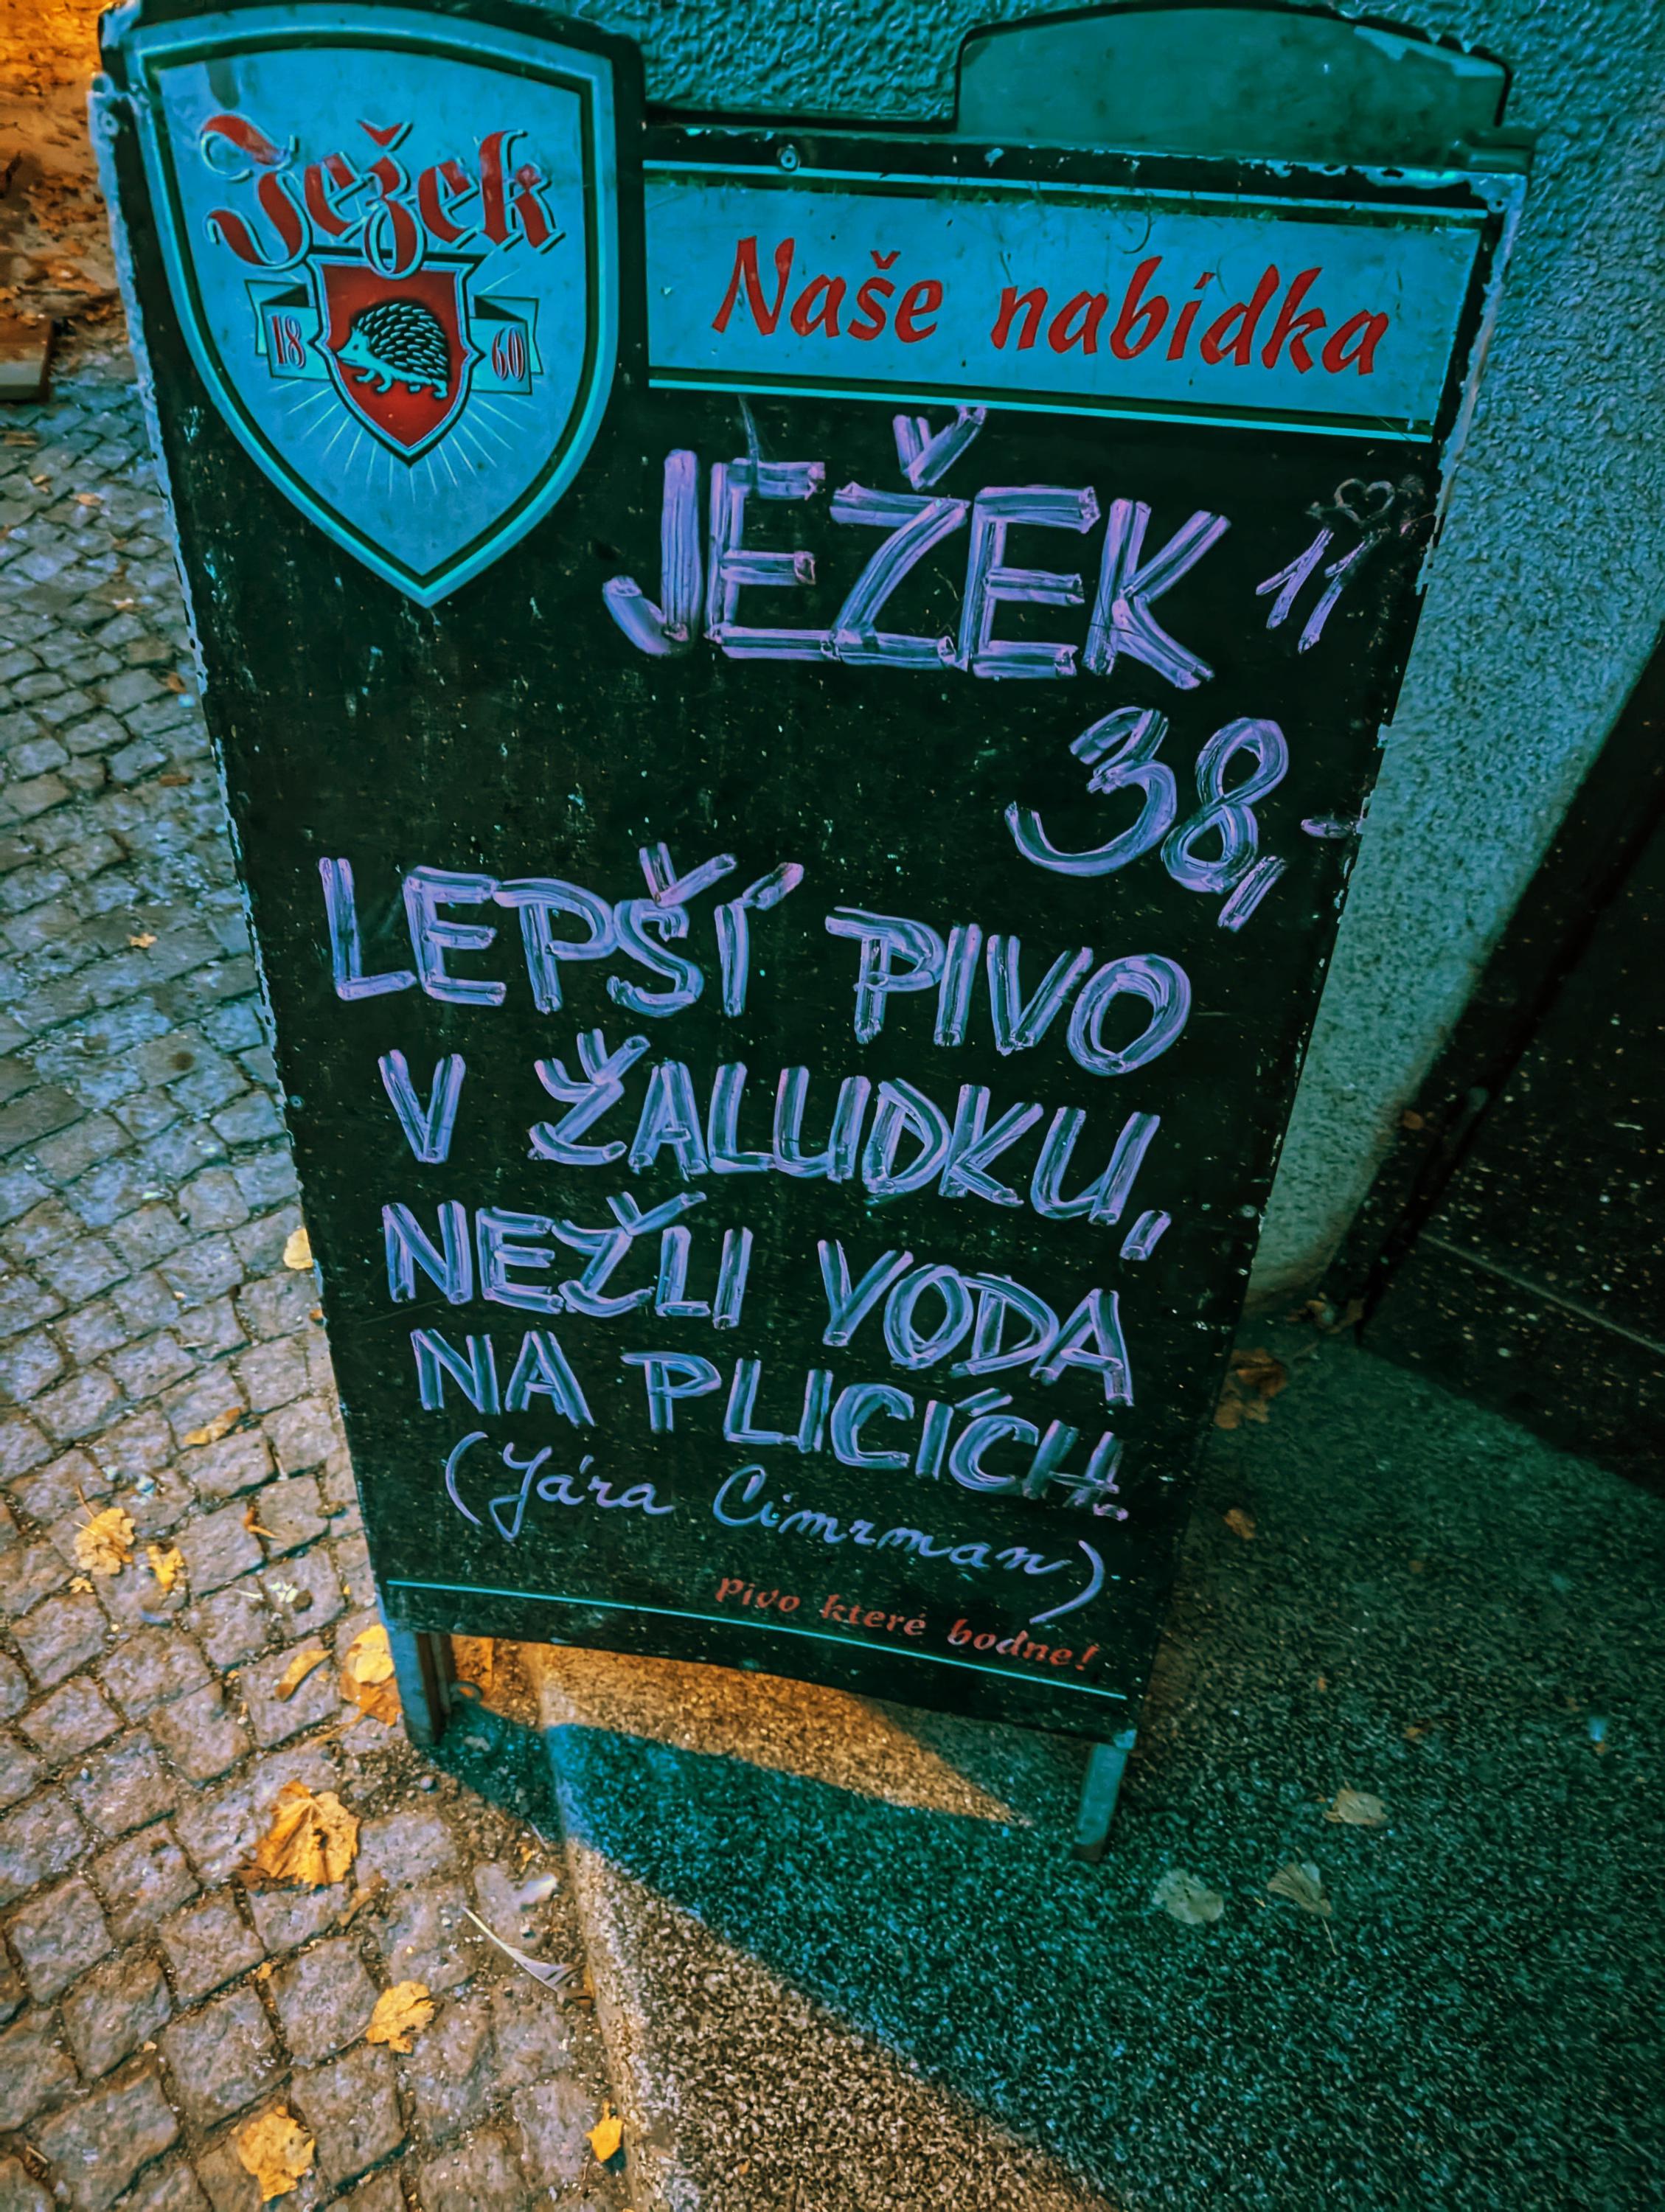 Ježek
18 60
Naše nabídka
JEŽEK 11°
38,-
LEPŠÍ PIVO
V ŽALUDKU,
NEŽLI VODA
NA PLICÍCH.
(Jára Cimrman)
Pivo které bodne!